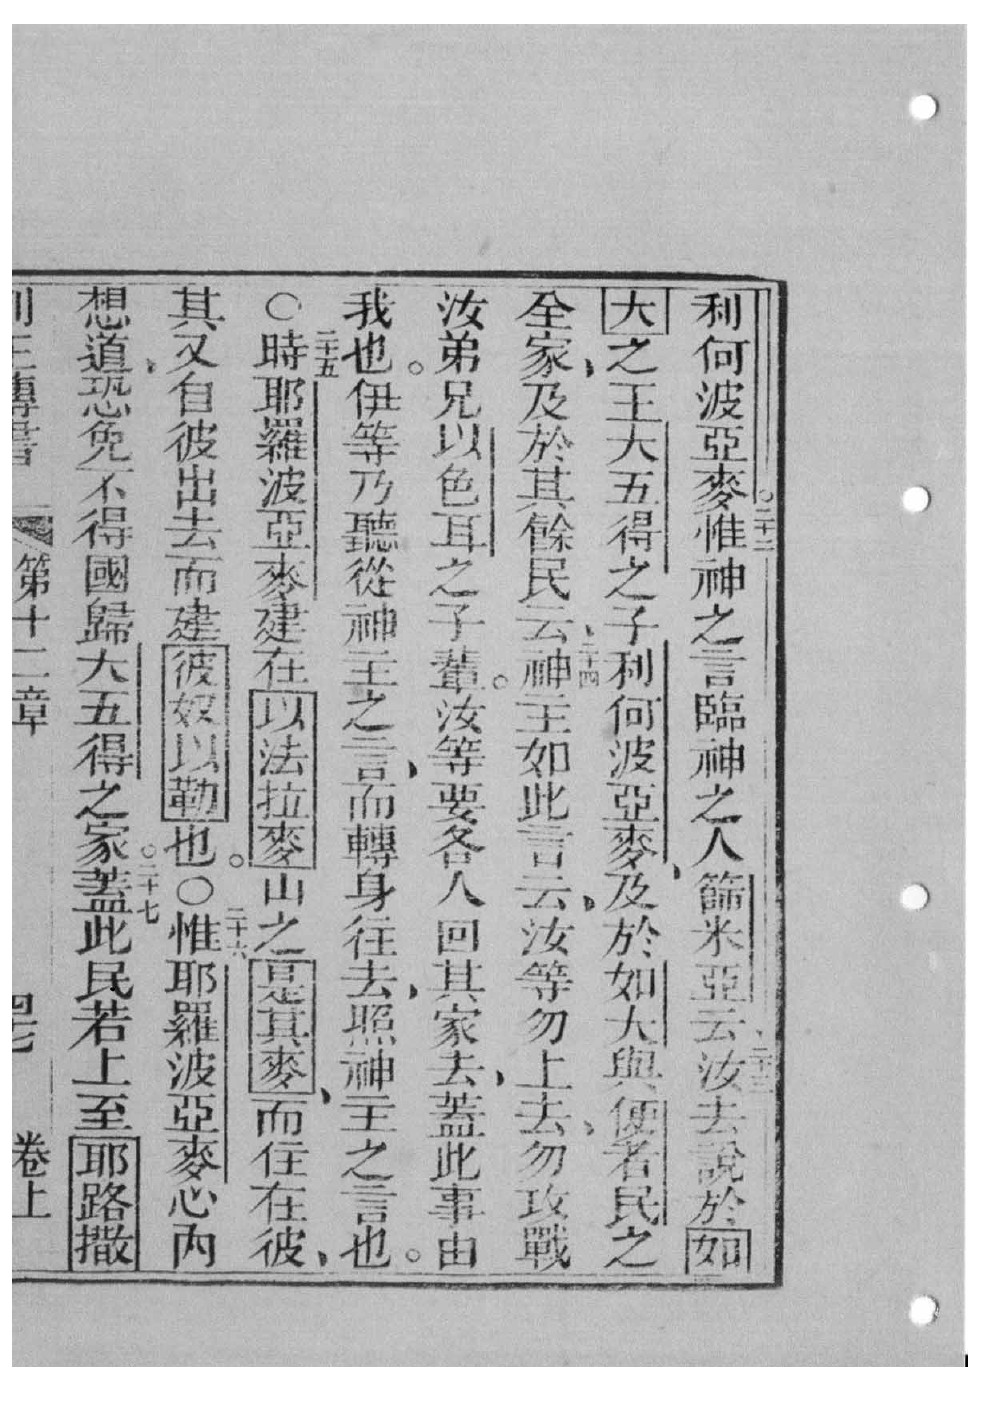 利何波亞麥○二十二惟神之言臨神之人篩米亞云、二十三汝去說於如
大之王大五得之子利何波亞麥、及於如大與便者民之
全家、及於其餘民云、二十四神主如此言云、汝等勿上去、勿攻戰
汝弟兄以色耳之子輩。汝等要各人回其家去、蓋此事由
我也。伊等乃聽從神主之言、而轉身往去、照神主之言也。
○二十五時耶羅波亞麥建在以法拉麥山之是其麥、而住在彼、
其又自彼出去而建彼奴以勒也。○二十六惟耶羅波亞麥心內
想道、恐免不得國歸大五得之家○二十七蓋此民若上至耶路撒
列王傳書 第十二章 四七 卷上